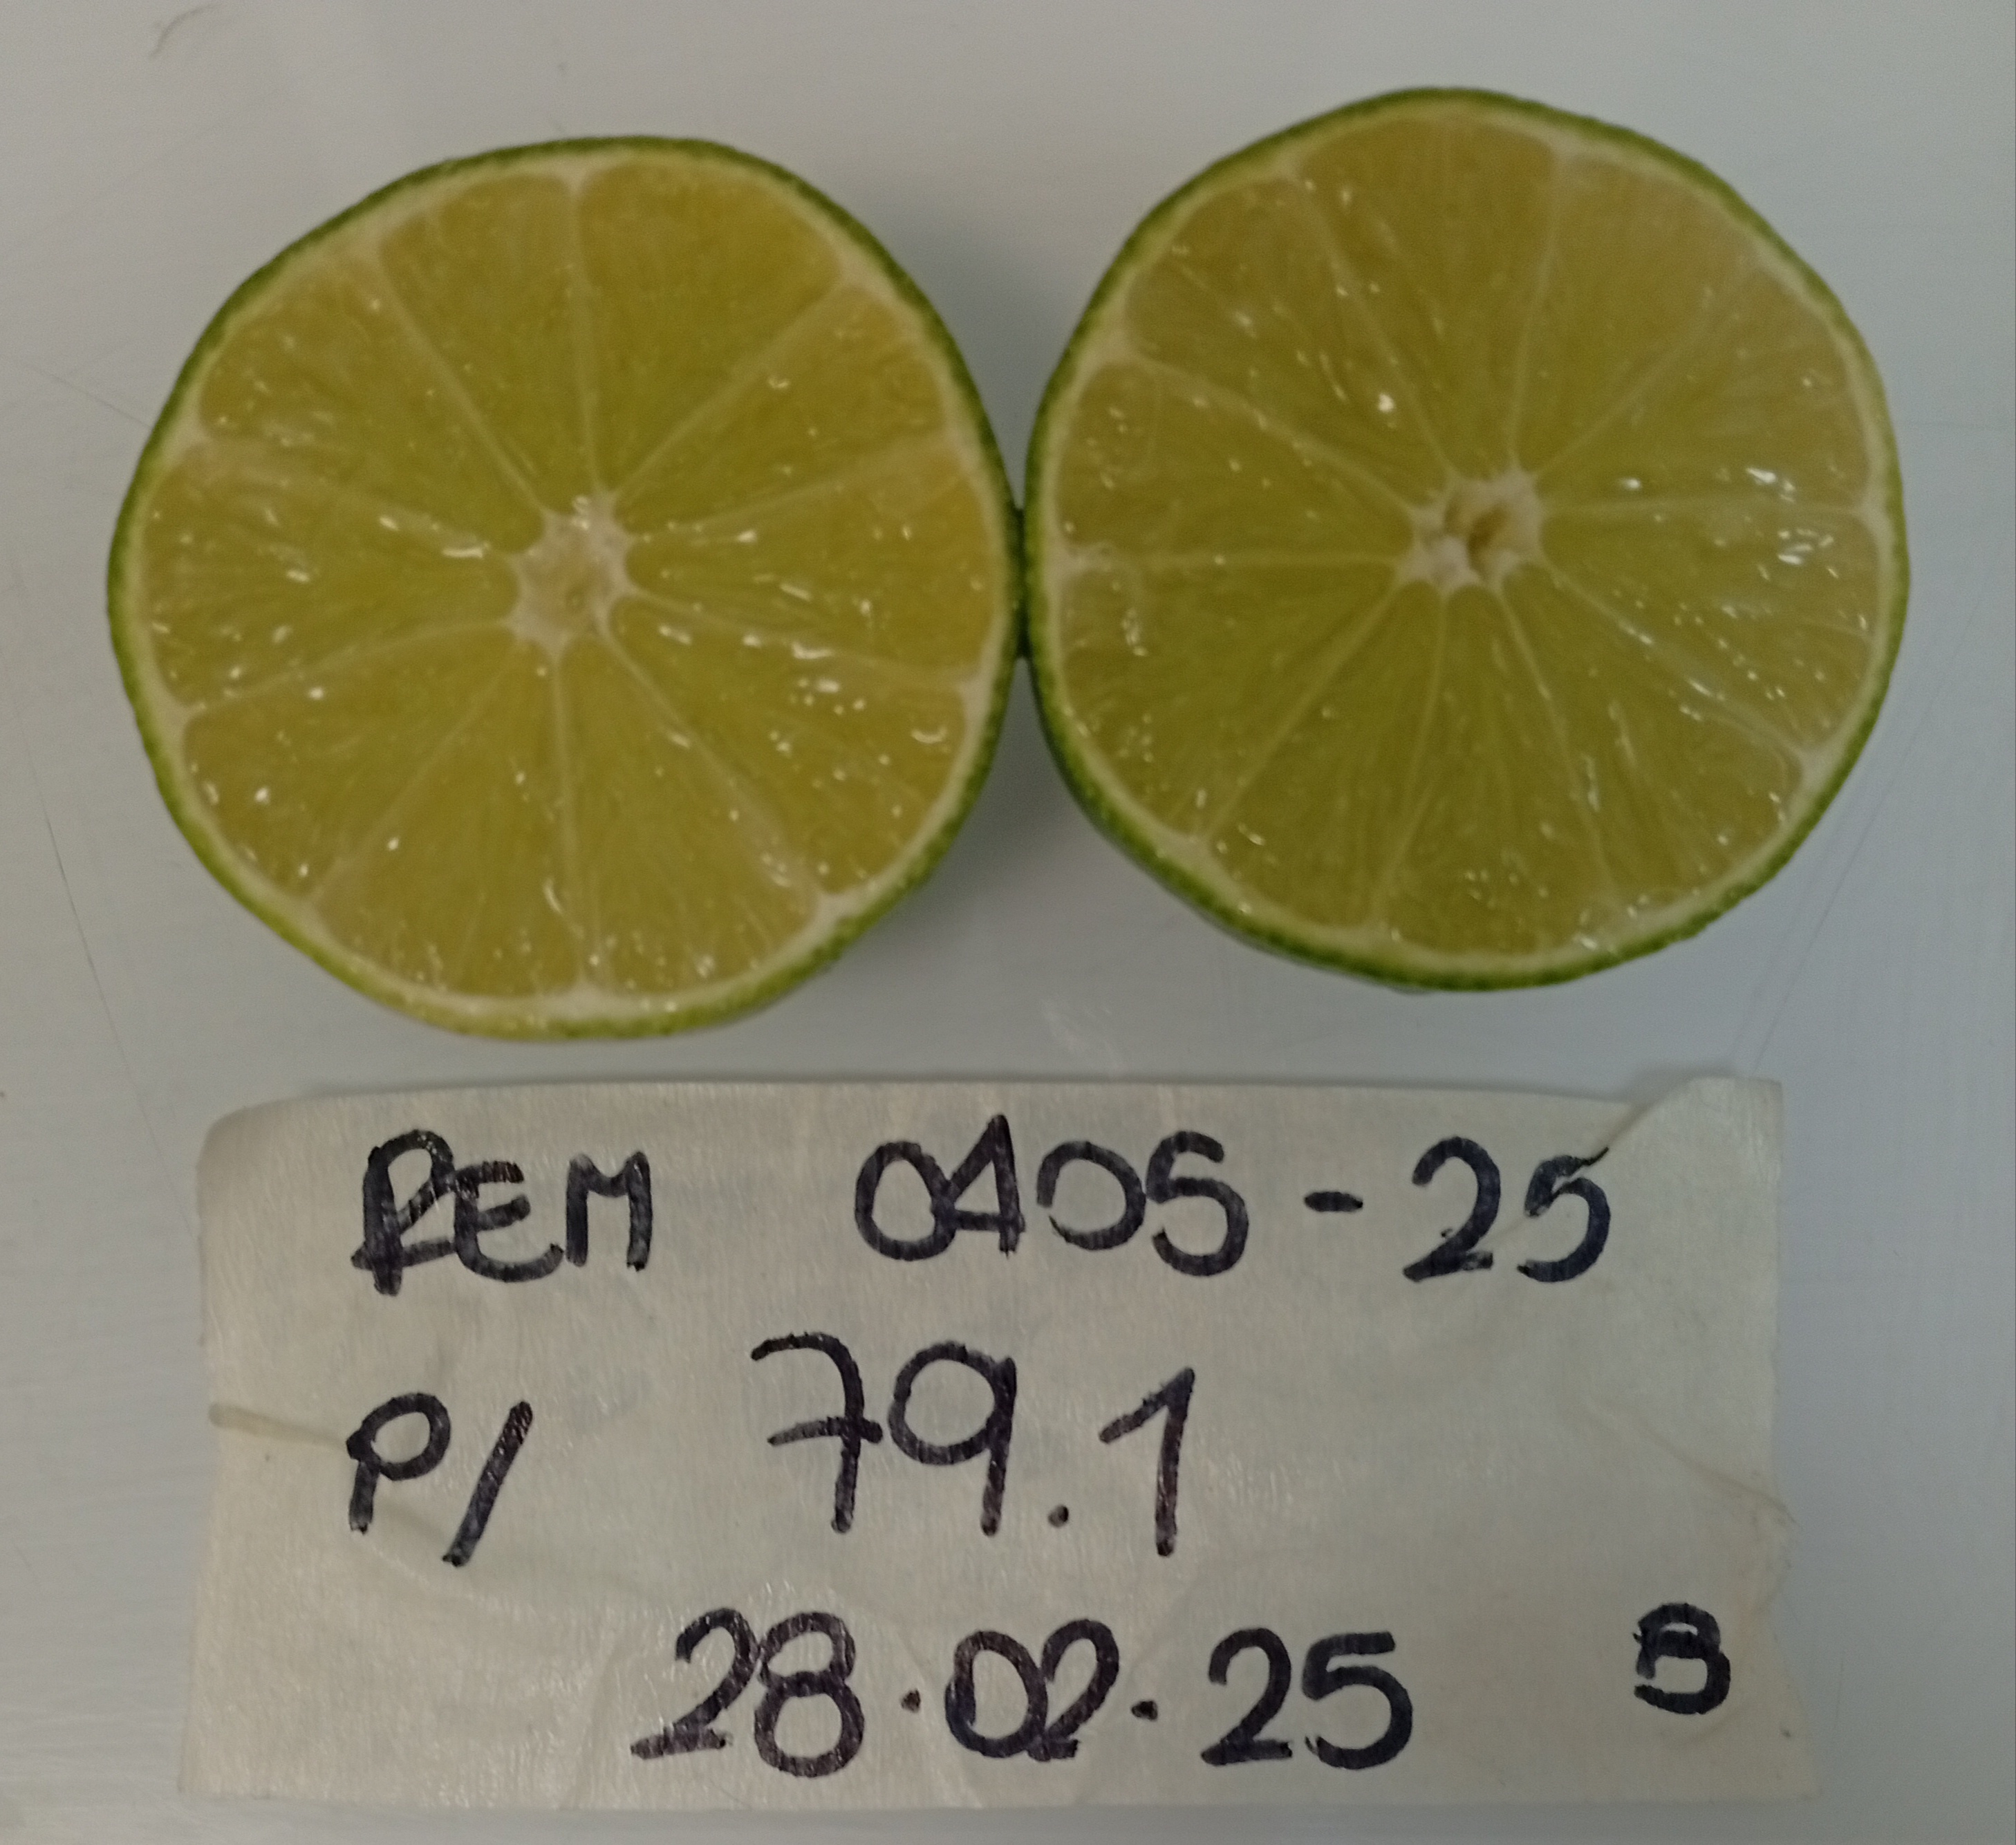 REM 0405-25
P/ 79.1
28.02.25 B